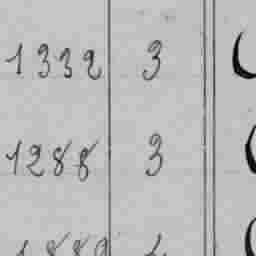 1332 3
1288 3